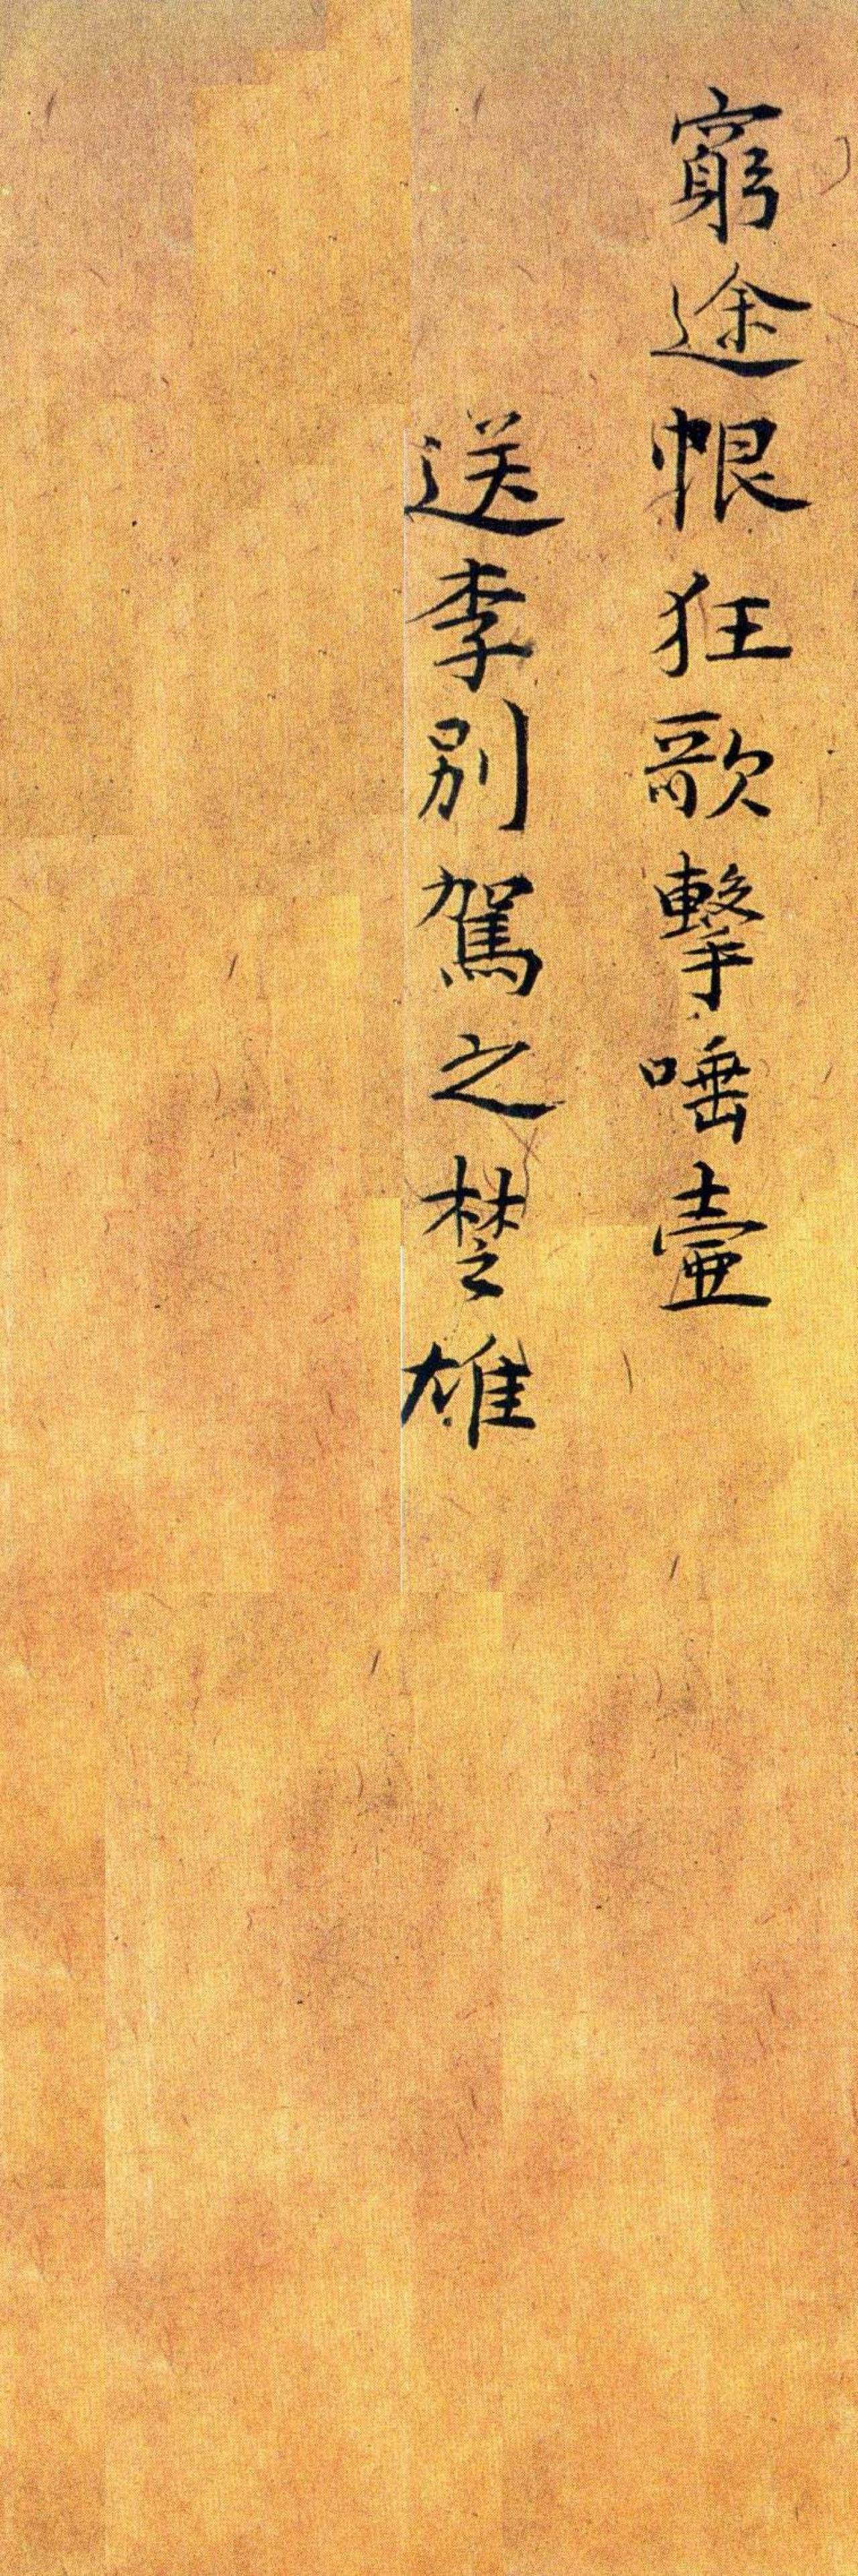 窮途恨狂歌擊唾壺
送李別駕之楚雄